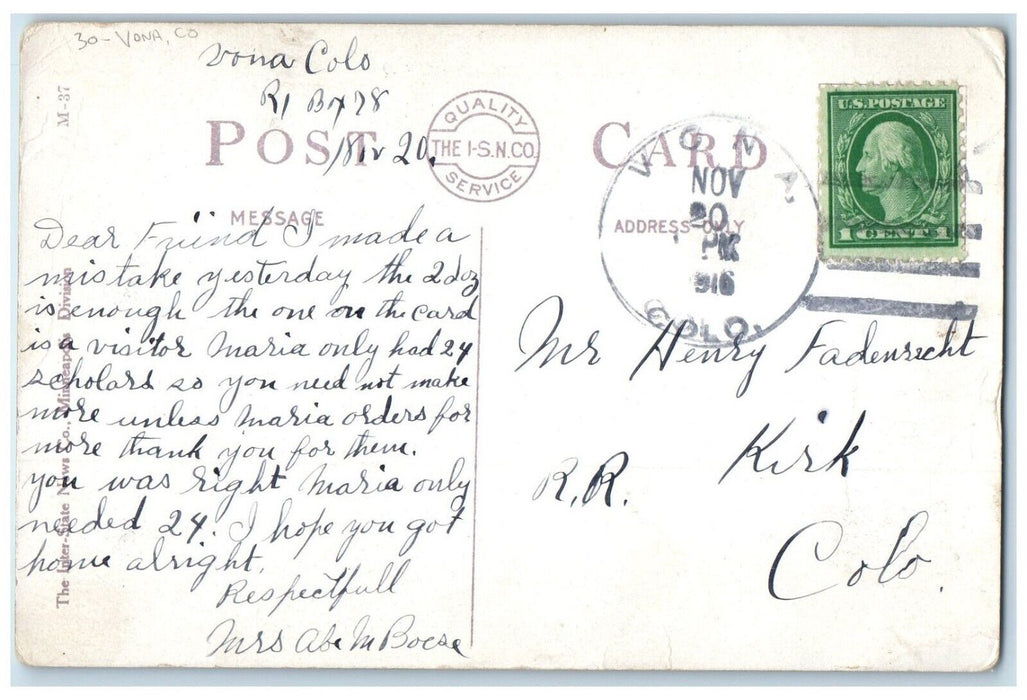 30 - VONA, CO
Vona Colo
R1 Box 78
Nov 20.
M-37
POST CARD
QUALITY
THE I-S.N.CO.
SERVICE
VONA.
NOV
20
PM
1916
COLO.
U.S. POSTAGE
1 CENT 1
MESSAGE
ADDRESS ONLY
The Inter-State News Co., Minneapolis Division
Dear Friend I made a
mistake yesterday the 2 doz
is enough the one on the card
is a visitor Maria only had 24
scholars so you need not make
more unless Maria orders for
more thank you for them.
you was right Maria only
needed 24. I hope you got
home alright.
Respectfull
Mrs Abe M Boese
Mr Henry Fadenrecht
Kirk
R.R.
Colo.